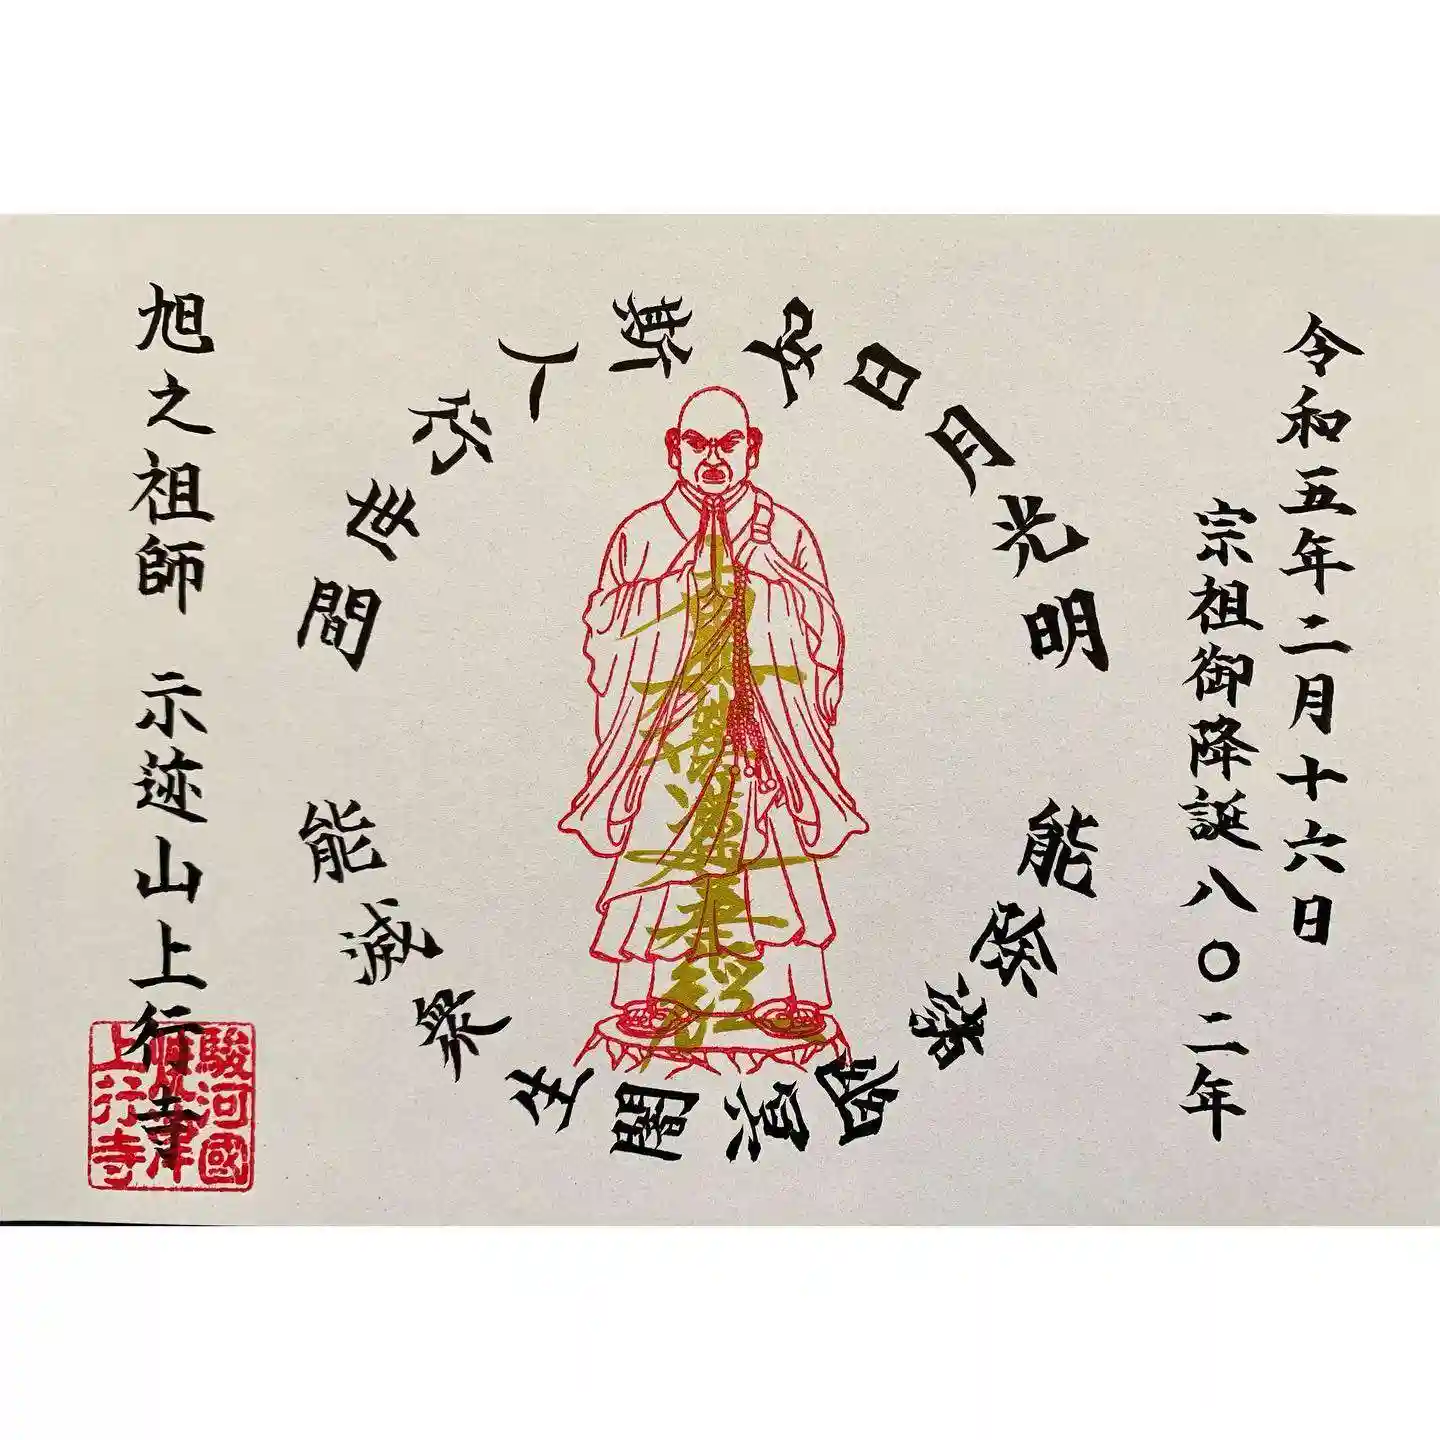 令和五年二月十六日
宗祖御降誕八〇二年
如日月光明
能除諸幽冥
斯人行世間
能滅衆生闇
南無妙法蓮華経
旭之祖師 示迹山上行寺
駿河國
上行寺